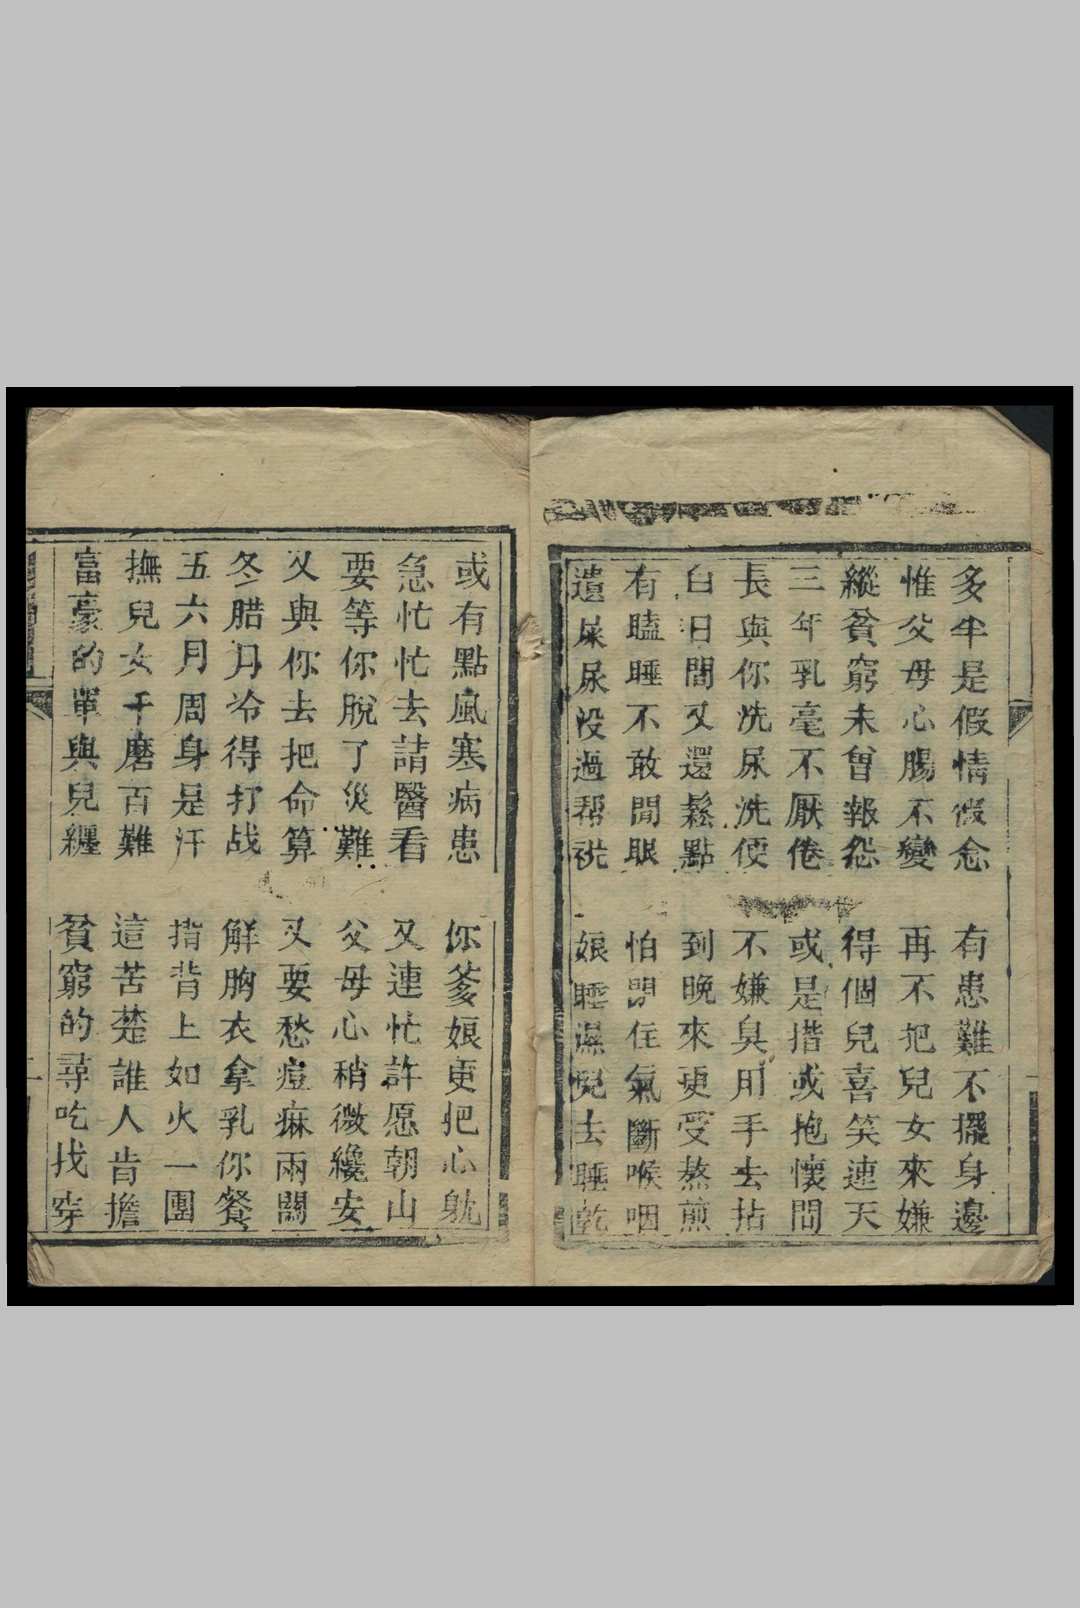 多半是假情假念　有患難不擺身邊
惟父母心腸不變　再不把兒女來嫌
縱貧窮未曾報怨　得個兒喜笑連天
三年乳毫不厭倦　或是揹或抱懷間
長與你洗尿洗便　不嫌臭用手去拈
白日間又還鬆點　到晚來更受熬煎
有瞌睡不敢閉眼　怕悶住氣斷喉咽
遺屎尿没過帮　娘睡濕兒去睡乾
或有點風寒病患　你爹娘更把心躭
急忙忙去請醫看　又連忙許愿朝山
要等你脫了災難　父母心稍微纔安
又與你去把命算　又要愁痘痲兩關
冬腊月冷得打战　解胸衣拿乳你餐
五六月周身是汗　指背上如火一團
撫兒女千磨百難　這苦楚誰人肯擔
富豪的單與兒纏　貧窮的尋吃找穿